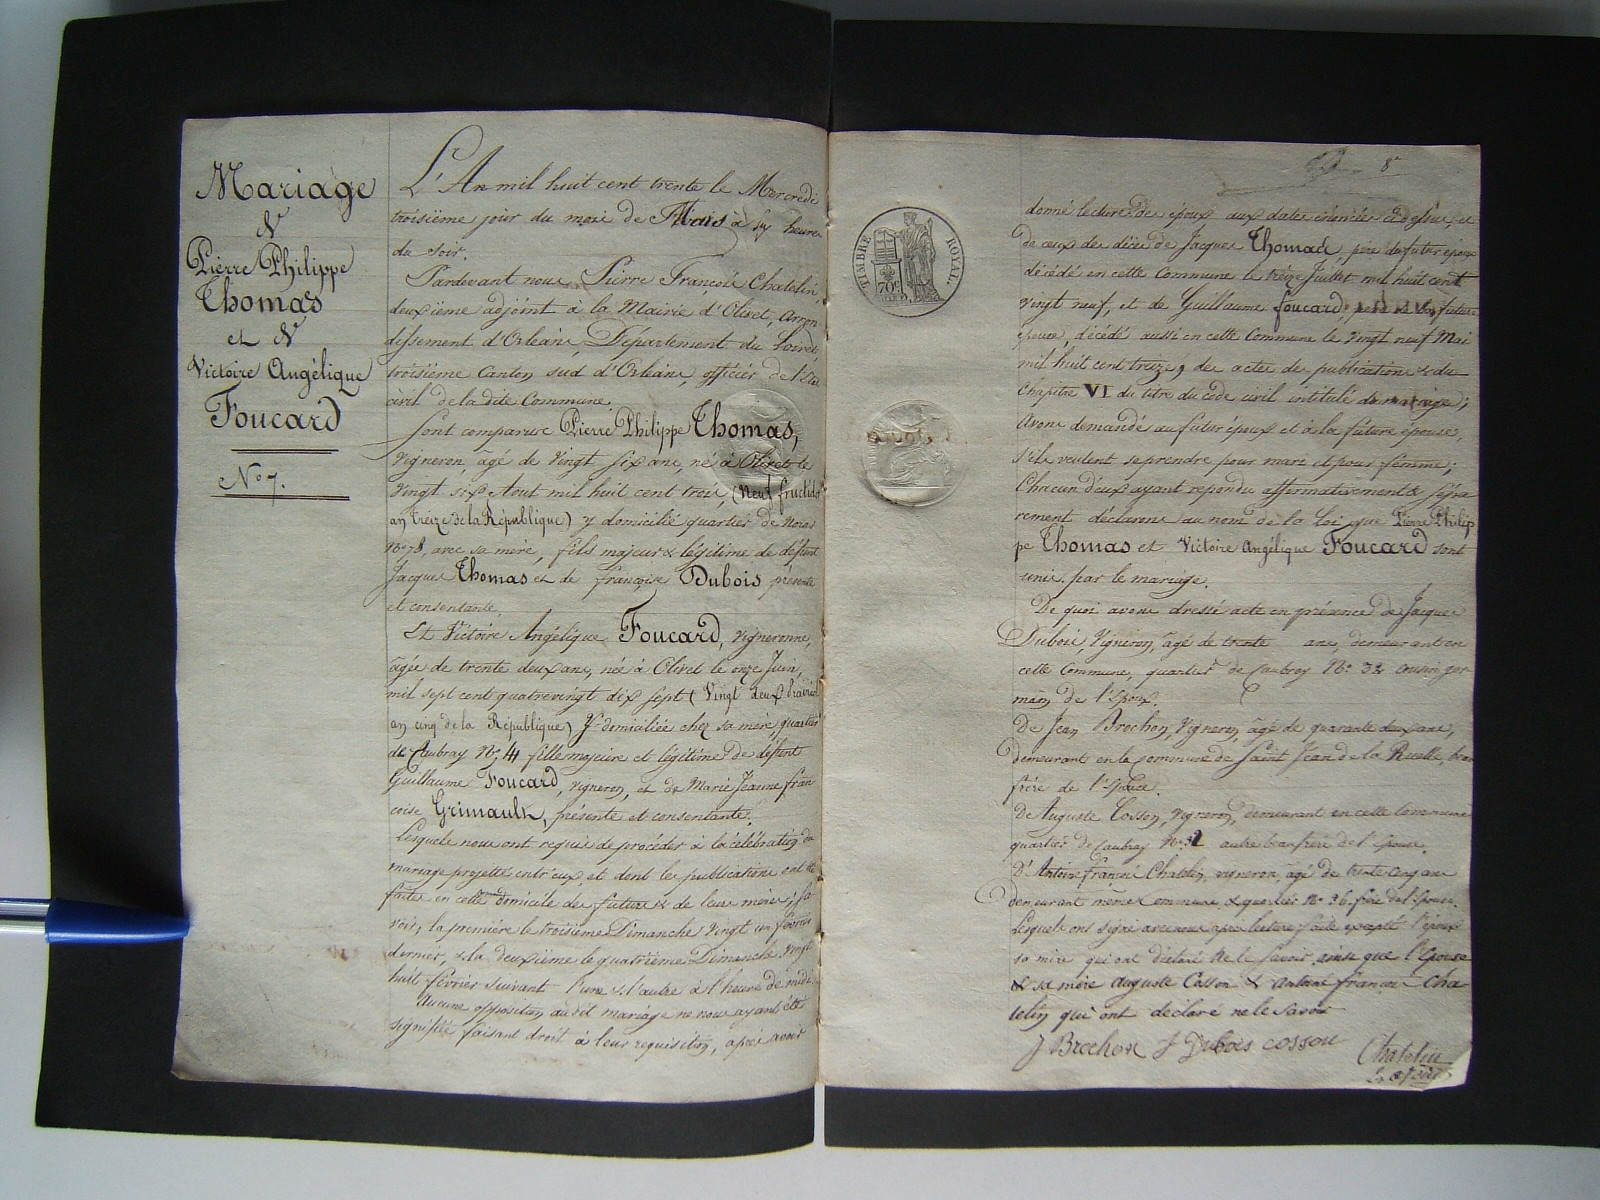 Mariage
N
Pierre Philippe
Thomas
et N
Victoire Angélique
Foucard
No 7.
L'An mil huit cent trente le Mercredi
troisième jour du mois de Mars à six heures
du soir.
Pardevant nous Pierre François Chatelin,
deuxième adjoint à la Mairie d'Olivet, Arron
dissement d'Orléans, Département du Loiret,
troisième Canton sud d'Orléans, officier de l'Etat
civil de la dite Commune.
Sont comparus Pierre Philippe Thomas,
vigneron, âgé de vingt six ans, né à Olivet le
vingt six Aout mil huit cent trois, (neuf fructidor
an treize de la République) y domicilié quartier de
No 78, avec sa mère, fils majeur & légitime de défunt
Jacques Thomas et de françoise Dubois présente
et consentante.
Et Victoire Angélique Foucard, vigneronne,
âgée de trente deux ans, née à Olivet le onze Juin,
mil sept cent quatrevingt dix sept (vingt deux prairial
an cinq de la République) y domiciliée chez sa mère, quartier
de Caubray No 4 fille majeure et légitime de défunt
Guillaume Foucard, vigneron, et de Marie Jeanne fran
coise Grimault, présente et consentante.
Lesquels nous ont requis de procéder à la célébration du
mariage projetté entr'eux, et dont les publications ont été
faites en cette domicile des futurs & de leurs mères; sa
voir, la première le troisième Dimanche vingt un février
dernier, & la deuxième le quatrième Dimanche vingt
huit février suivant l'une & l'autre à l'heure de midi.
Aucune opposition au dit mariage ne nous ayant été
signifiée faisant droit à leur requisition, après avoir
8e
TIMBRE ROYAL.
70c
donné lecture des époux aux dates énoncées cidessus, et
de ceux des décès de Jacques Thomas, père du futur époux
décédé en cette Commune le treize Juillet mil huit cent
vingt neuf, et de Guillaume foucard, père de la future
épouse, décédé aussi en cette Commune le vingt neuf Mai
mil huit cent treize, des actes de publications & du
chapitre VI du titre du code civil intitulé du mariage;
Avons demandés au futur époux et à la future épouse,
s'ils veulent se prendre pour mari et pour femme;
Chacun d'eux ayant repondu affirmativement & sépa
rement déclarons au nom de la Loi que Pierre Philip
pe Thomas et Victoire Angélique Foucard sont
unis par le mariage.
De quoi avons dressé acte en présence de Jacques
Dubois, vigneron, âgé de trente ans, demeurant en
cette Commune, quartier de Caubray No 32 cousin ger
main de l'époux.
De Jean Brochon, vigneron, âgé de quarante deux ans,
demeurant en la commune de Saint Jean de la Ruelle, beau
frère de l'épouse.
De Auguste Cosson, vigneron, demeurant en cette Commune
quartier de Caubray No autre beaufrère de l'épouse.
D'Antoine françois Chatelin, vigneron, âgé de trente cinq ans
demeurant même commune & quartier No 36 de l'épouse.
Lesquels ont signé avec nous après lecture faite excepté l'époux
sa mère qui ont déclaré ne le savoir ainsi que l'épouse
& sa mère auguste Cosson & antoine françois Cha
telin qui ont déclaré ne le savoir
J Brochon J Dubois cosson Chatelin